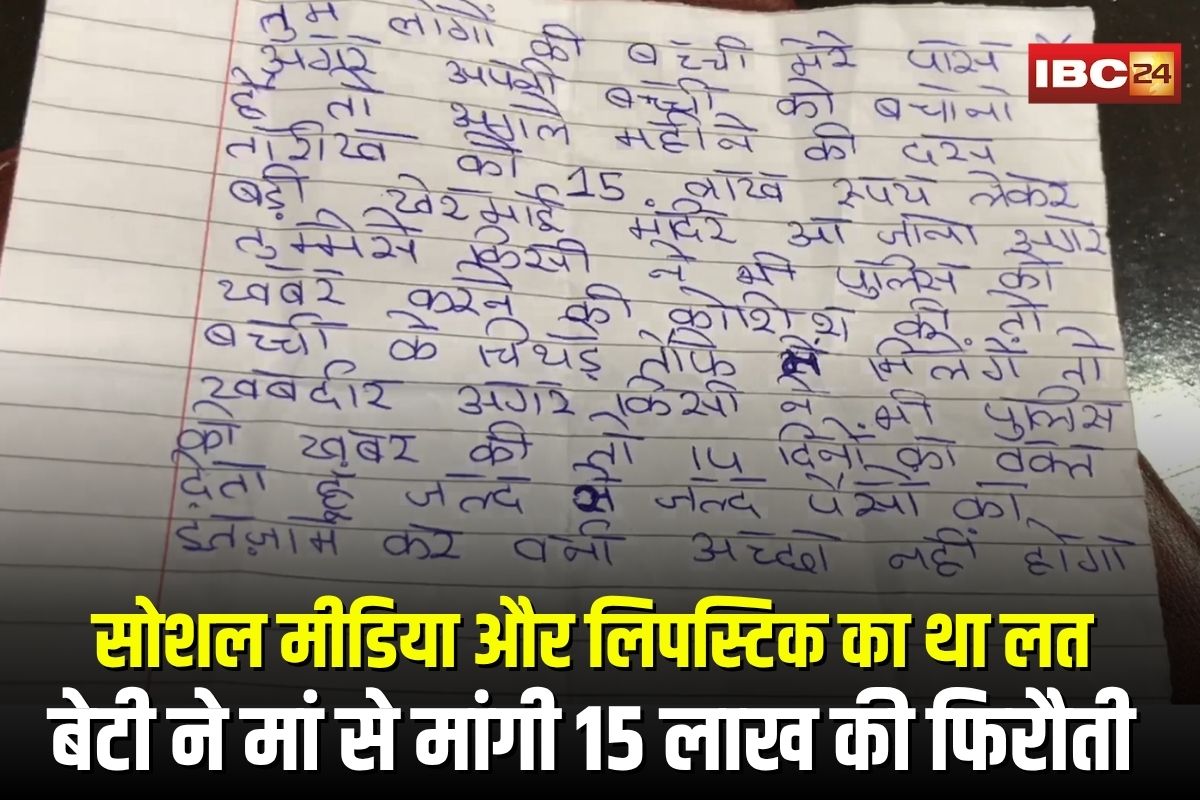 तुम लोगों की बच्ची मेरे पास
अगर अपनी बच्ची को बचाना
है तो अगले महीने की दस
तारीख को 15 लाख रूपय लेकर
बड़ी खेरमाई मंदिर आ जाना अगर
तुममेसे किसी ने भी पुलिस को
खबर करने की कोशिश की तो
बच्ची के चिथड़े तोफे में मिलेगें तो
खबर्दार अगर किसी ने भी पुलिस
को ख़बर की तो 15 दिनों का वक्त
देता हूँ जल्द से जल्द पैसों का
इंतज़ाम कर वर्ना अच्छा नहीं होगा
IBC24
सोशल मीडिया और लिपस्टिक का था लत
बेटी ने मां से मांगी 15 लाख की फिरौती